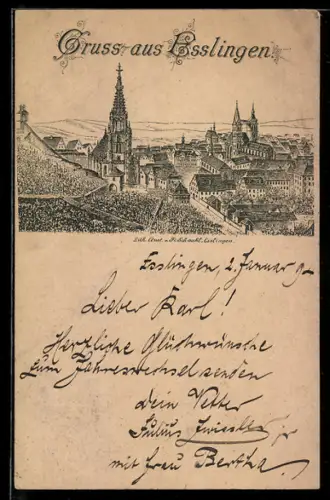 Gruss aus Esslingen.
Lith. Anst. v.
Esslingen, 2. Januar 9
Lieber Karl!
Herzliche Glückwünsche
zum Jahreswechsel senden
dein Vetter
Julius jr
mit Frau Bertha.